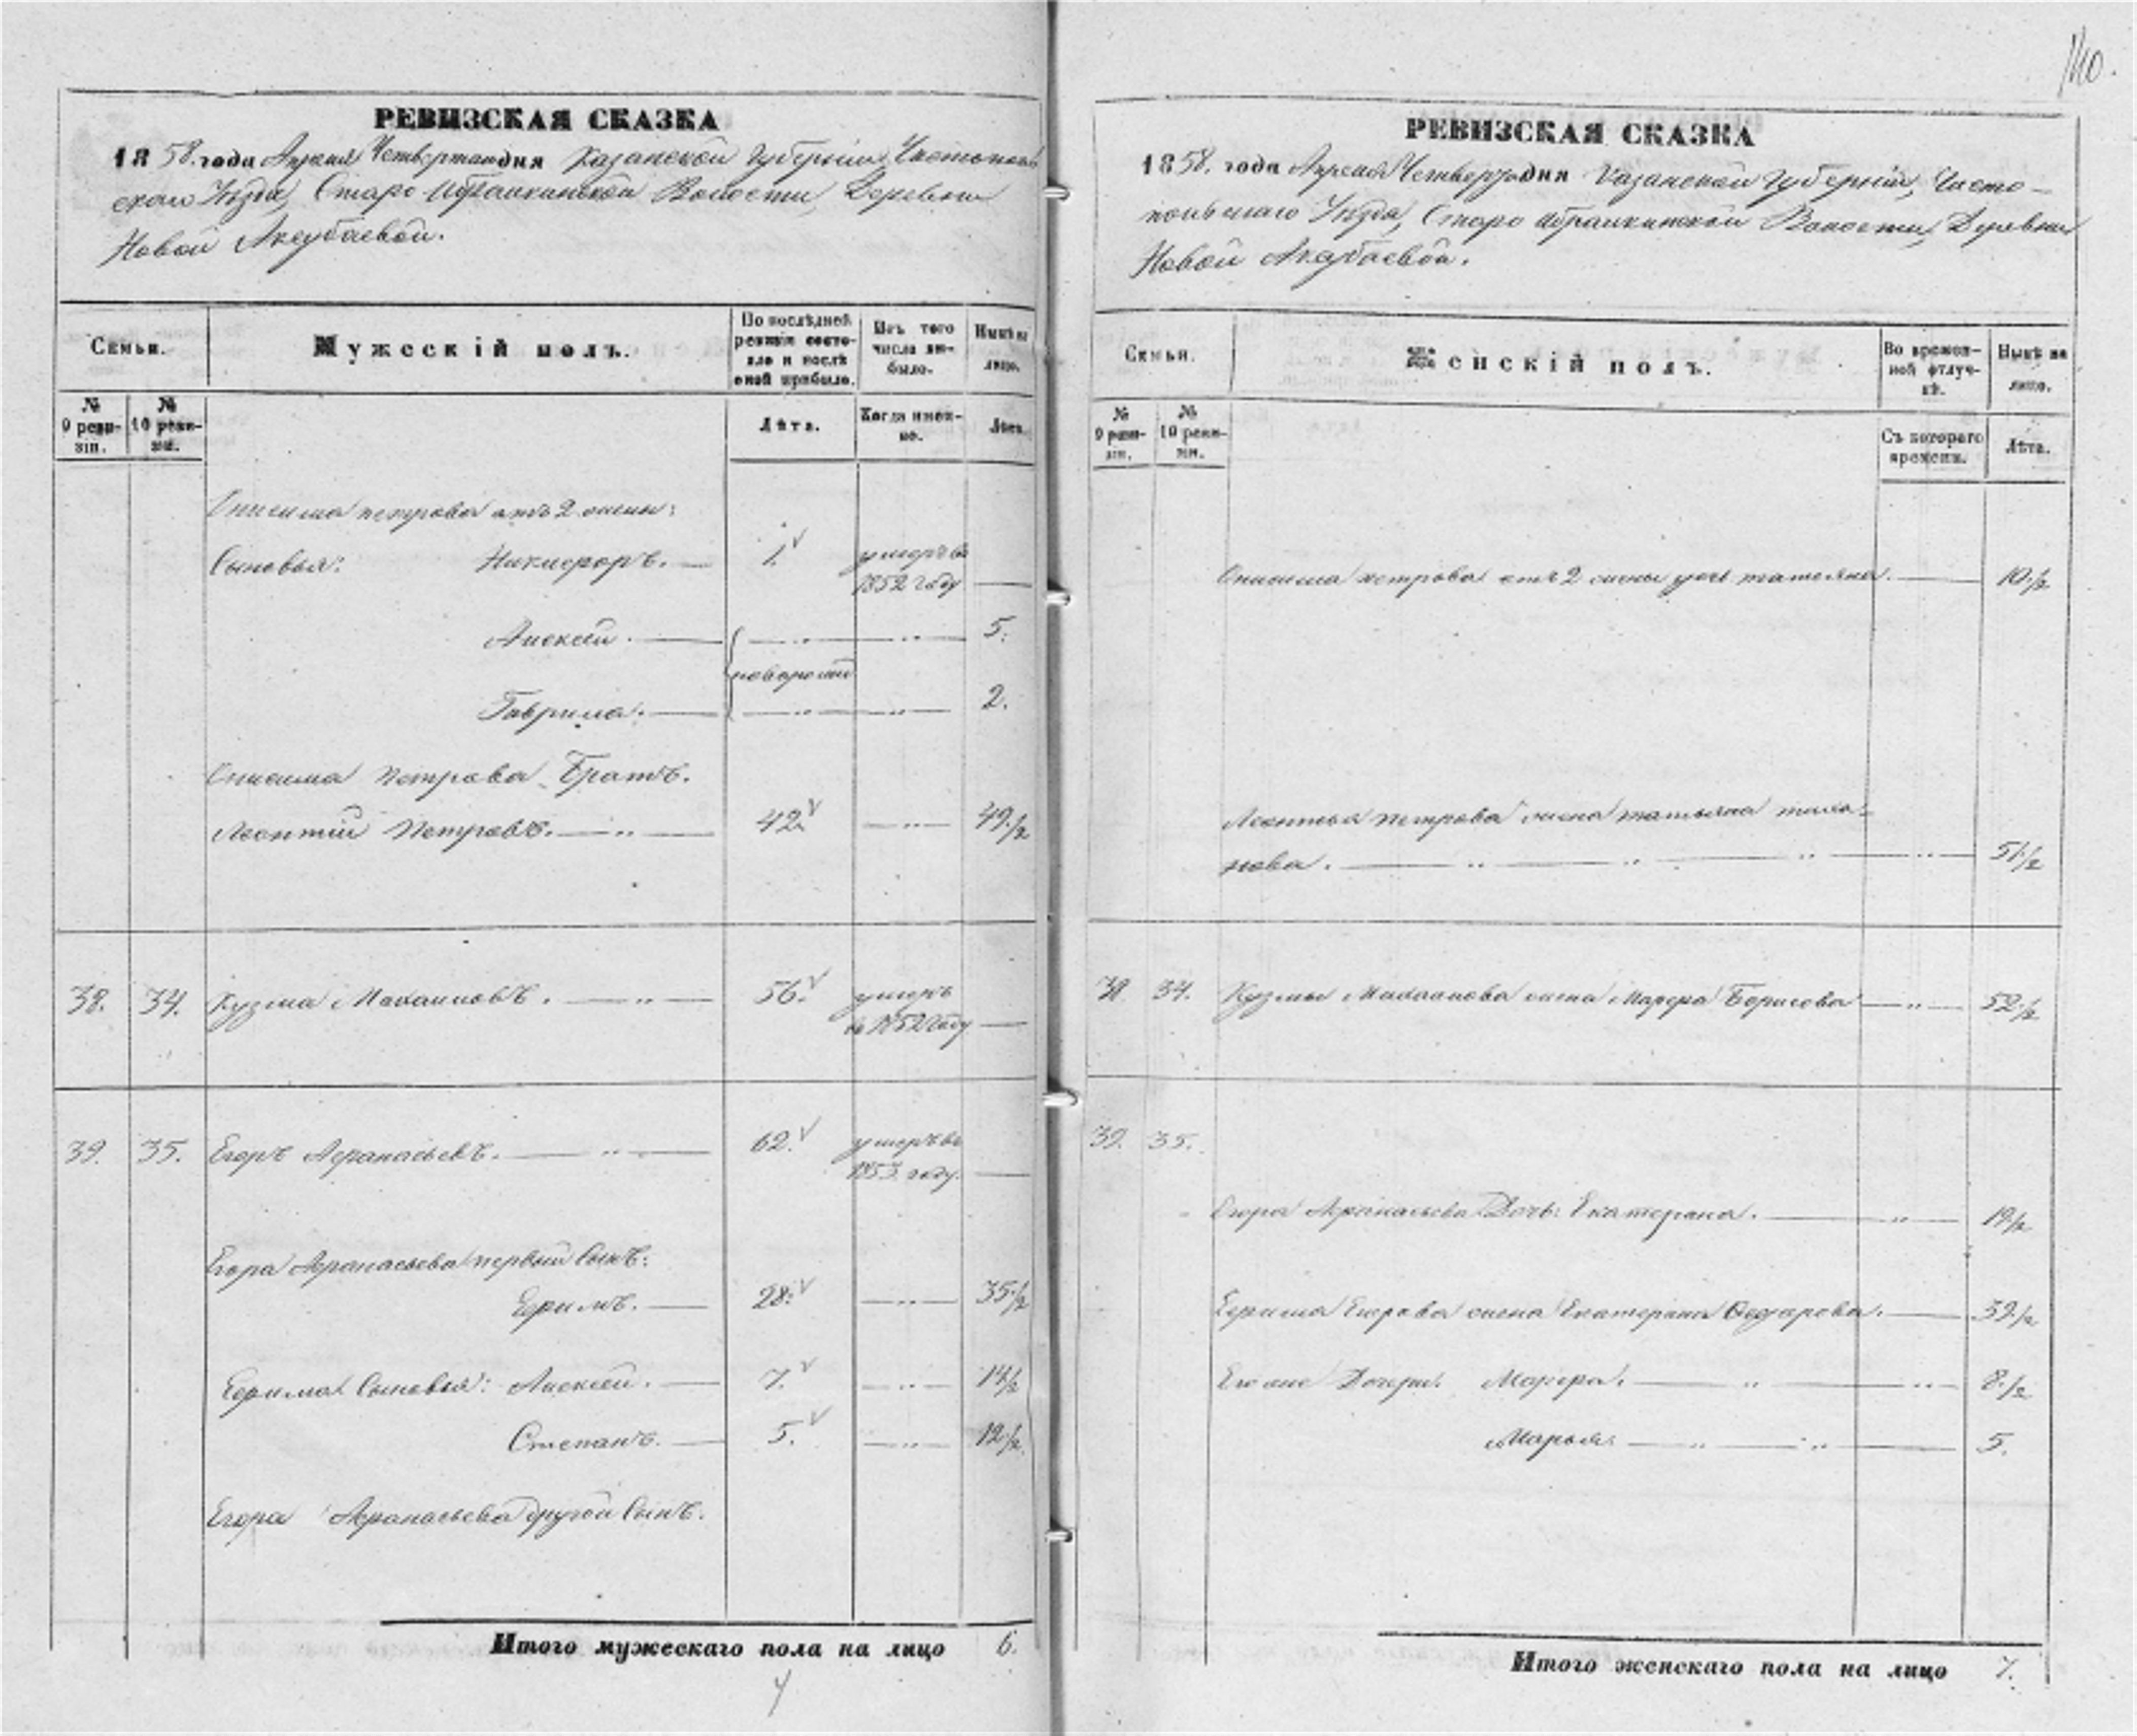 140.
РЕВИЗСКАЯ СКАЗКА
1858. года Апреля Четвертаго дня Казанской Губерніи, Чистополь
скаго Уѣзда, Старо Ибраикинской Волости, Деревни
Новой Аксубаевой.
Семьи.
Мужескій полъ.
По послѣдней ревизіи состояло и послѣ оной прибыло.
Изъ того числа выбыло.
Нынѣ на лицо.
№ 9 ревизіи.
№ 10 ревизіи.
Лѣта.
Когда именно.
Лѣта.
Онисима петрова отъ 2 жены:
Сыновья: Никифоръ. 1. умеръ въ
1852 году
Алексей. 5.
новорожд
Гаврила. 2.
Онисима Петрова Братъ.
Леонтій Петровъ. 42. 49 1/2
38. 34. Кузма Михаиловъ. 56. умеръ
въ 1852 году
39. 35. Егоръ Афанасьевъ. 62. умеръ въ
1853 году.
Егора Афанасьева первый Сынъ:
Ефимъ. 28. 35 1/2
Ефима Сыновья: Алексей. 7. 14 1/2
Степанъ. 5. 12 1/2
Егора Афанасьева другой Сынъ.
Итого мужескаго пола на лицо 6.
РЕВИЗСКАЯ СКАЗКА
1858. года Апреля Четвертаго дня Казанской Губерніи, Чисто-
польскаго Уѣзда, Старо Ибраикинской Волости, Деревни
Новой Аксубаевой.
Семьи.
Женскій полъ.
Во временной отлучкѣ.
Нынѣ на лицо.
№ 9 ревизіи.
№ 10 ревизіи.
Съ котораго времени.
Лѣта.
Онисима петрова отъ 2 жены дочь татеяна. 10 1/2
Леонтья петрова жена татьяна
нова. 51 1/2
38 34. Кузмы Михаилова жена Марфа Борисова 52 1/2
39. 35.
Егора Афанасьева Дочь: Екатерина. 19 1/2
Ефима Егорова жена Екатерина Федорова. 39 1/2
Его Дочери. Марфа. 8 1/2
Марья. 5.
Итого женскаго пола на лицо 7.